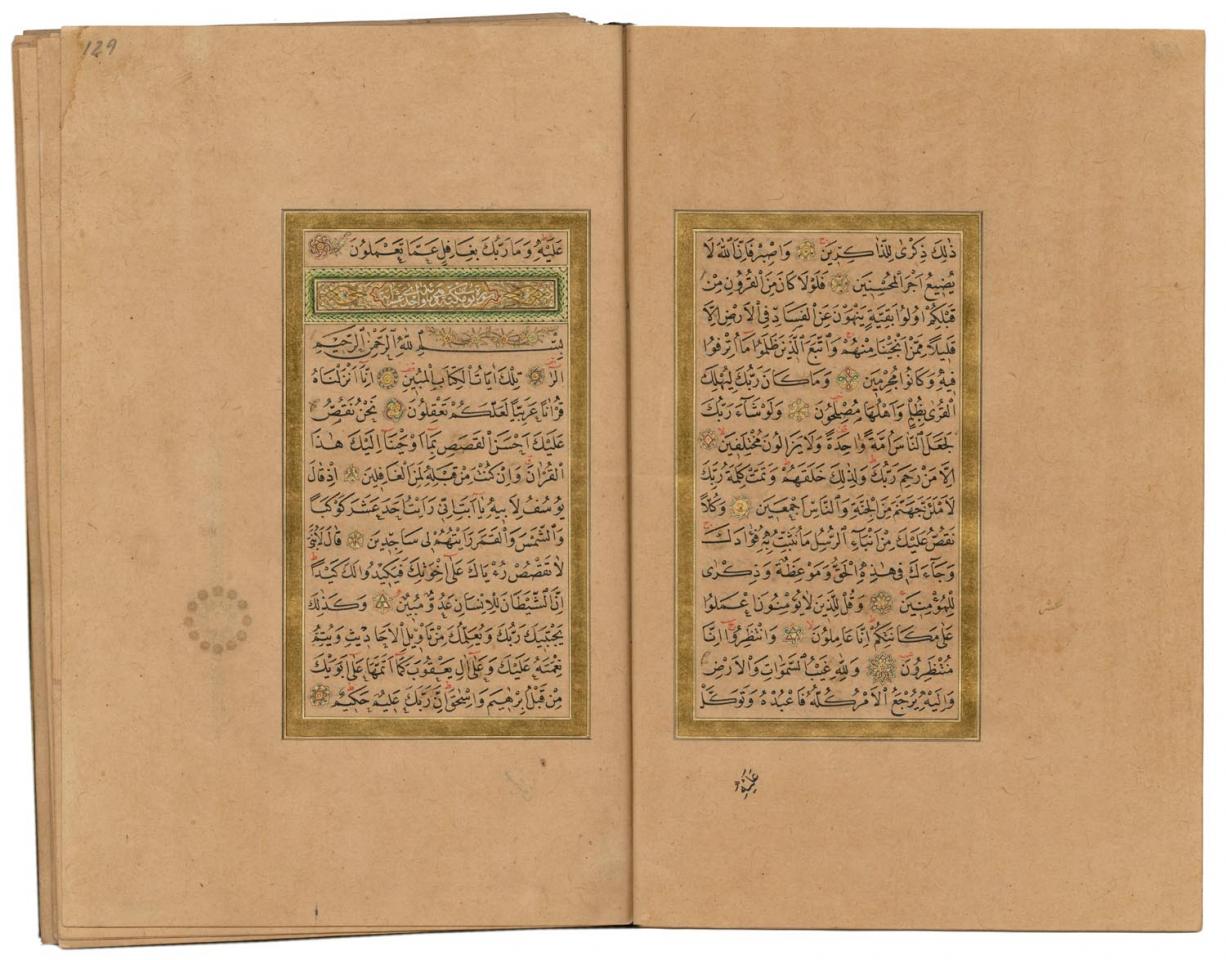 ذٰلِكَ ذِكْرٰى لِلذَّاكِرِينَ وَاصْبِرْ فَاِنَّ اللّٰهَ لَا
يُضِيعُ اَجْرَ الْمُحْسِنِينَ فَلَوْلَا كَانَ مِنَ الْقُرُونِ مِنْ
قَبْلِكُمْ اُولُوا بَقِيَّةٍ يَنْهَوْنَ عَنِ الْفَسَادِ فِى الْاَرْضِ اِلَّا
قَلِيلًا مِمَّنْ اَنْجَيْنَا مِنْهُمْ وَاتَّبَعَ الَّذِينَ ظَلَمُوا مَا اُتْرِفُوا
فِيهِ وَكَانُوا مُجْرِمِينَ وَمَا كَانَ رَبُّكَ لِيُهْلِكَ
الْقُرٰى بِظُلْمٍ وَاَهْلُهَا مُصْلِحُونَ وَلَوْ شَاءَ رَبُّكَ
لَجَعَلَ النَّاسَ اُمَّةً وَاحِدَةً وَلَا يَزَالُونَ مُخْتَلِفِينَ
اِلَّا مَنْ رَحِمَ رَبُّكَ وَلِذٰلِكَ خَلَقَهُمْ وَتَمَّتْ كَلِمَةُ رَبِّكَ
لَاَمْلَئَنَّ جَهَنَّمَ مِنَ الْجِنَّةِ وَالنَّاسِ اَجْمَعِينَ وَكُلًّا
نَقُصُّ عَلَيْكَ مِنْ اَنْبَاءِ الرُّسُلِ مَا نُثَبِّتُ بِهِ فُؤَادَكَ
وَجَاءَكَ فِى هٰذِهِ الْحَقُّ وَمَوْعِظَةٌ وَذِكْرٰى
لِلْمُؤْمِنِينَ وَقُلْ لِلَّذِينَ لَا يُؤْمِنُونَ اعْمَلُوا
عَلٰى مَكَانَتِكُمْ اِنَّا عَامِلُونَ وَانْتَظِرُوا اِنَّا
مُنْتَظِرُونَ وَلِلّٰهِ غَيْبُ السَّمٰوَاتِ وَالْاَرْضِ
وَاِلَيْهِ يُرْجَعُ الْاَمْرُ كُلُّهُ فَاعْبُدْهُ وَتَوَكَّلْ
عَلَيْهِ
129
عَلَيْهِ وَمَا رَبُّكَ بِغَافِلٍ عَمَّا تَعْمَلُونَ
سورة يوسف مكية وهي مائة
بِسْمِ اللّٰهِ الرَّحْمٰنِ الرَّحِيمِ
الٓرٰ تِلْكَ اٰيَاتُ الْكِتَابِ الْمُبِينِ اِنَّا اَنْزَلْنَاهُ
قُرْاٰنًا عَرَبِيًّا لَعَلَّكُمْ تَعْقِلُونَ نَحْنُ نَقُصُّ
عَلَيْكَ اَحْسَنَ الْقَصَصِ بِمَا اَوْحَيْنَا اِلَيْكَ هٰذَا
الْقُرْاٰنَ وَاِنْ كُنْتَ مِنْ قَبْلِهِ لَمِنَ الْغَافِلِينَ اِذْ قَالَ
يُوسُفُ لِاَبِيهِ يَا اَبَتِ اِنِّى رَاَيْتُ اَحَدَ عَشَرَ كَوْكَبًا
وَالشَّمْسَ وَالْقَمَرَ رَاَيْتُهُمْ لِى سَاجِدِينَ قَالَ يَا بُنَىَّ
لَا تَقْصُصْ رُءْيَاكَ عَلٰى اِخْوَتِكَ فَيَكِيدُوا لَكَ كَيْدًا
اِنَّ الشَّيْطَانَ لِلْاِنْسَانِ عَدُوٌّ مُبِينٌ وَكَذٰلِكَ
يَجْتَبِيكَ رَبُّكَ وَيُعَلِّمُكَ مِنْ تَأْوِيلِ الْاَحَادِيثِ وَيُتِمُّ
نِعْمَتَهُ عَلَيْكَ وَعَلٰى اٰلِ يَعْقُوبَ كَمَا اَتَمَّهَا عَلٰى اَبَوَيْكَ
مِنْ قَبْلُ اِبْرٰهِيمَ وَاِسْحٰقَ اِنَّ رَبَّكَ عَلِيمٌ حَكِيمٌ